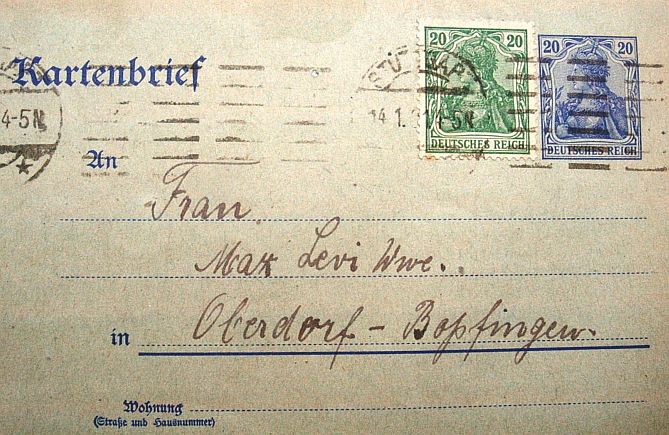 Kartenbrief
STUTTGART
20 20
20 20
4-5N
14.1.21 4-5N
DEUTSCHES REICH
DEUTSCHES REICH
An
Frau
Max Levi Wwe.
in Oberdorf - Bopfingen.
Wohnung
(Straße und Hausnummer)